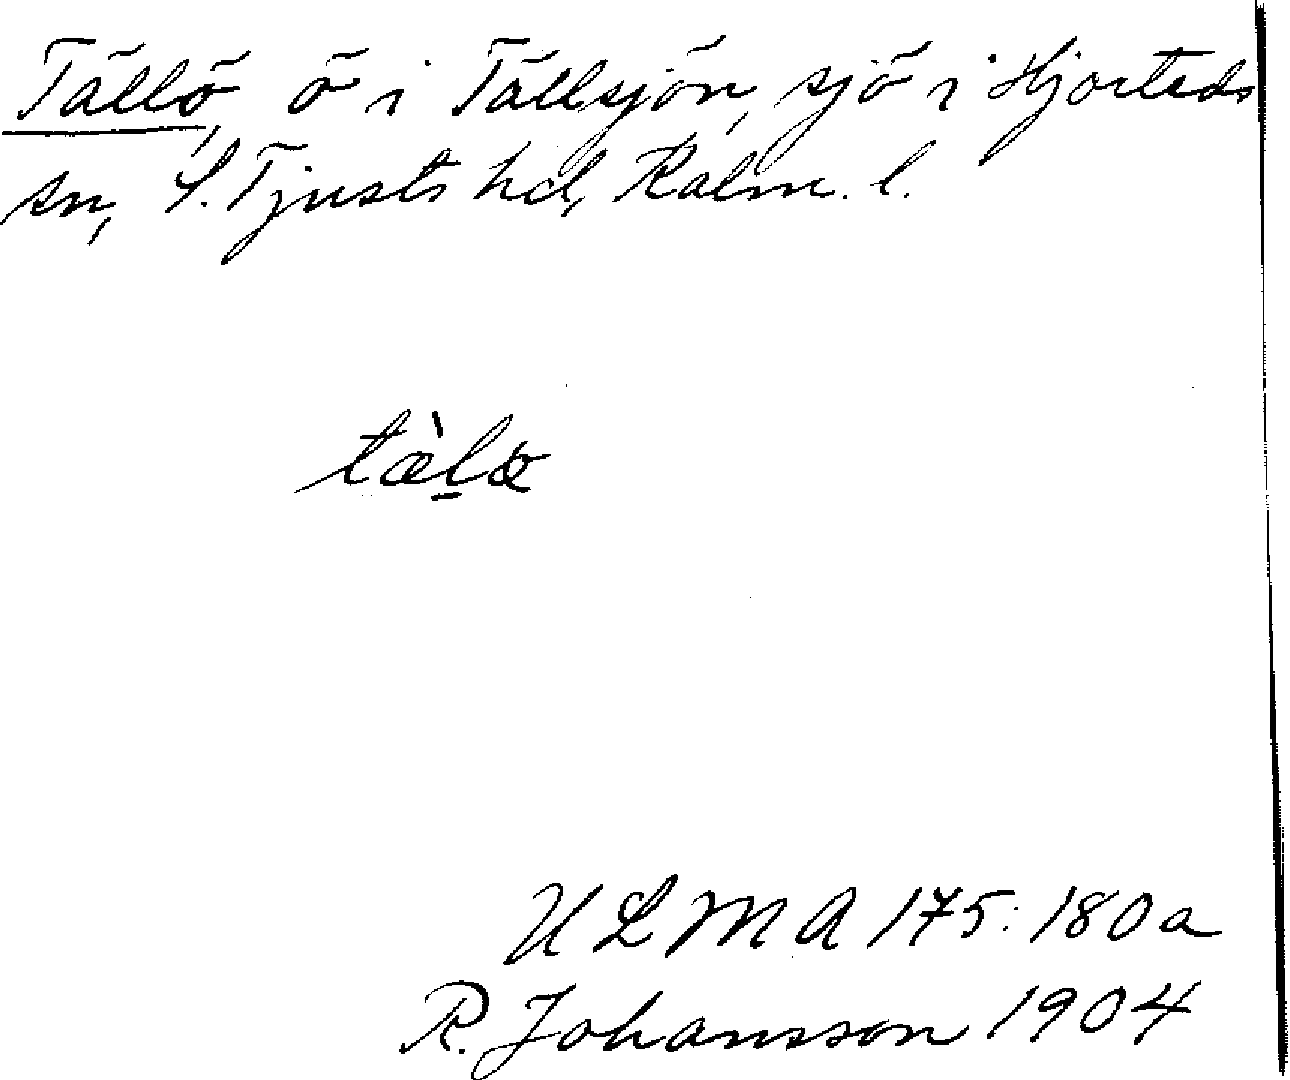 Tällö, ö i Tällsjön, sjö i Hjorteds
sn, S. Tjusts hd, Kalm. l.
tæ̀l̠ø
ULMA 175:180a
R. Johansson 1904